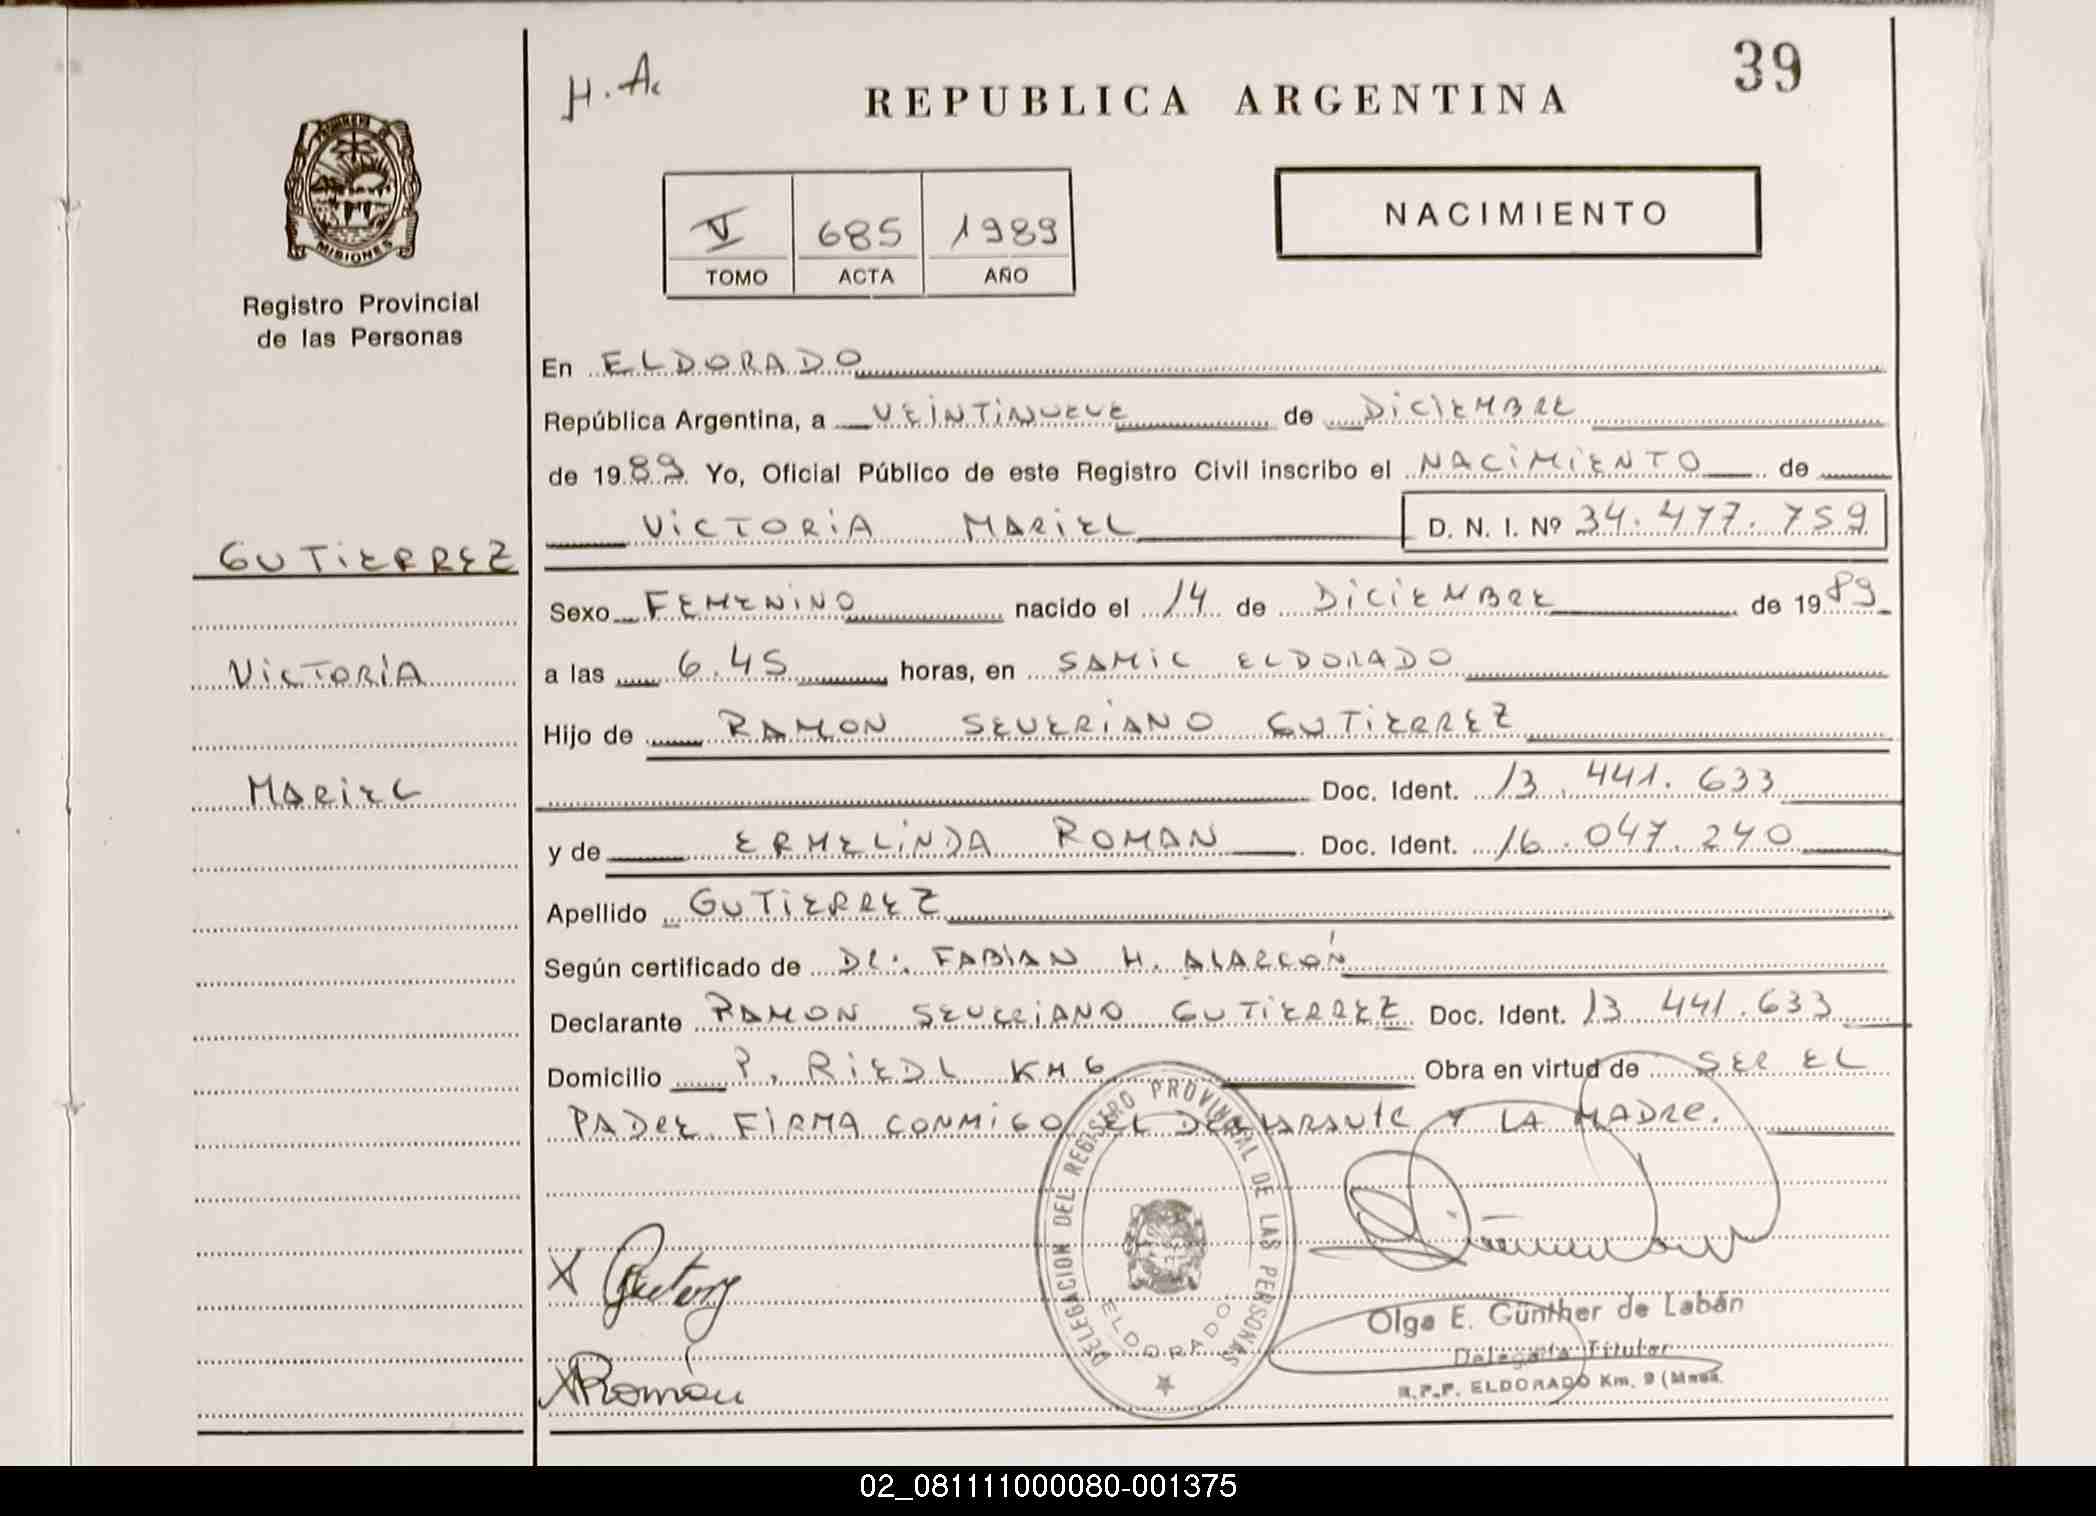 39
H. A.
REPUBLICA ARGENTINA
MISIONES
Registro Provincial
de las Personas
V 685 1989
TOMO ACTA AÑO
NACIMIENTO
En ELDORADO
República Argentina, a VEINTINUEVE de DICIEMBRE
de 1989 Yo, Oficial Público de este Registro Civil inscribo el NACIMIENTO de
VICTORIA MARIEL D. N. I. Nº 34.477.759
GUTIERREZ
VICTORIA
MARIEL
Sexo FEMENINO nacido el 14 de DICIEMBRE de 1989
a las 6.45 horas, en SAMIC ELDORADO
Hijo de RAMON SEVERIANO GUTIERREZ
Doc. Ident. 13.441.633
y de ERMELINDA ROMAN Doc. Ident. 16.047.240
Apellido GUTIERREZ
Según certificado de Dr. FABIAN H. ALARCÓN
Declarante RAMON SEVERIANO GUTIERREZ Doc. Ident. 13.441.633
Domicilio P. RIEDL KM 6 Obra en virtud de SER EL
PADRE. FIRMA CONMIGO EL DECLARANTE Y LA MADRE.
DELEGACION DEL REGISTRO PROVINCIAL DE LAS PERSONAS
ELDORADO
X Gutierrez
X Román
Olga E. Günther de Labán
Delegada Titular
R.P.P. ELDORADO Km. 9 (Mnes.
02_081111000080-001375